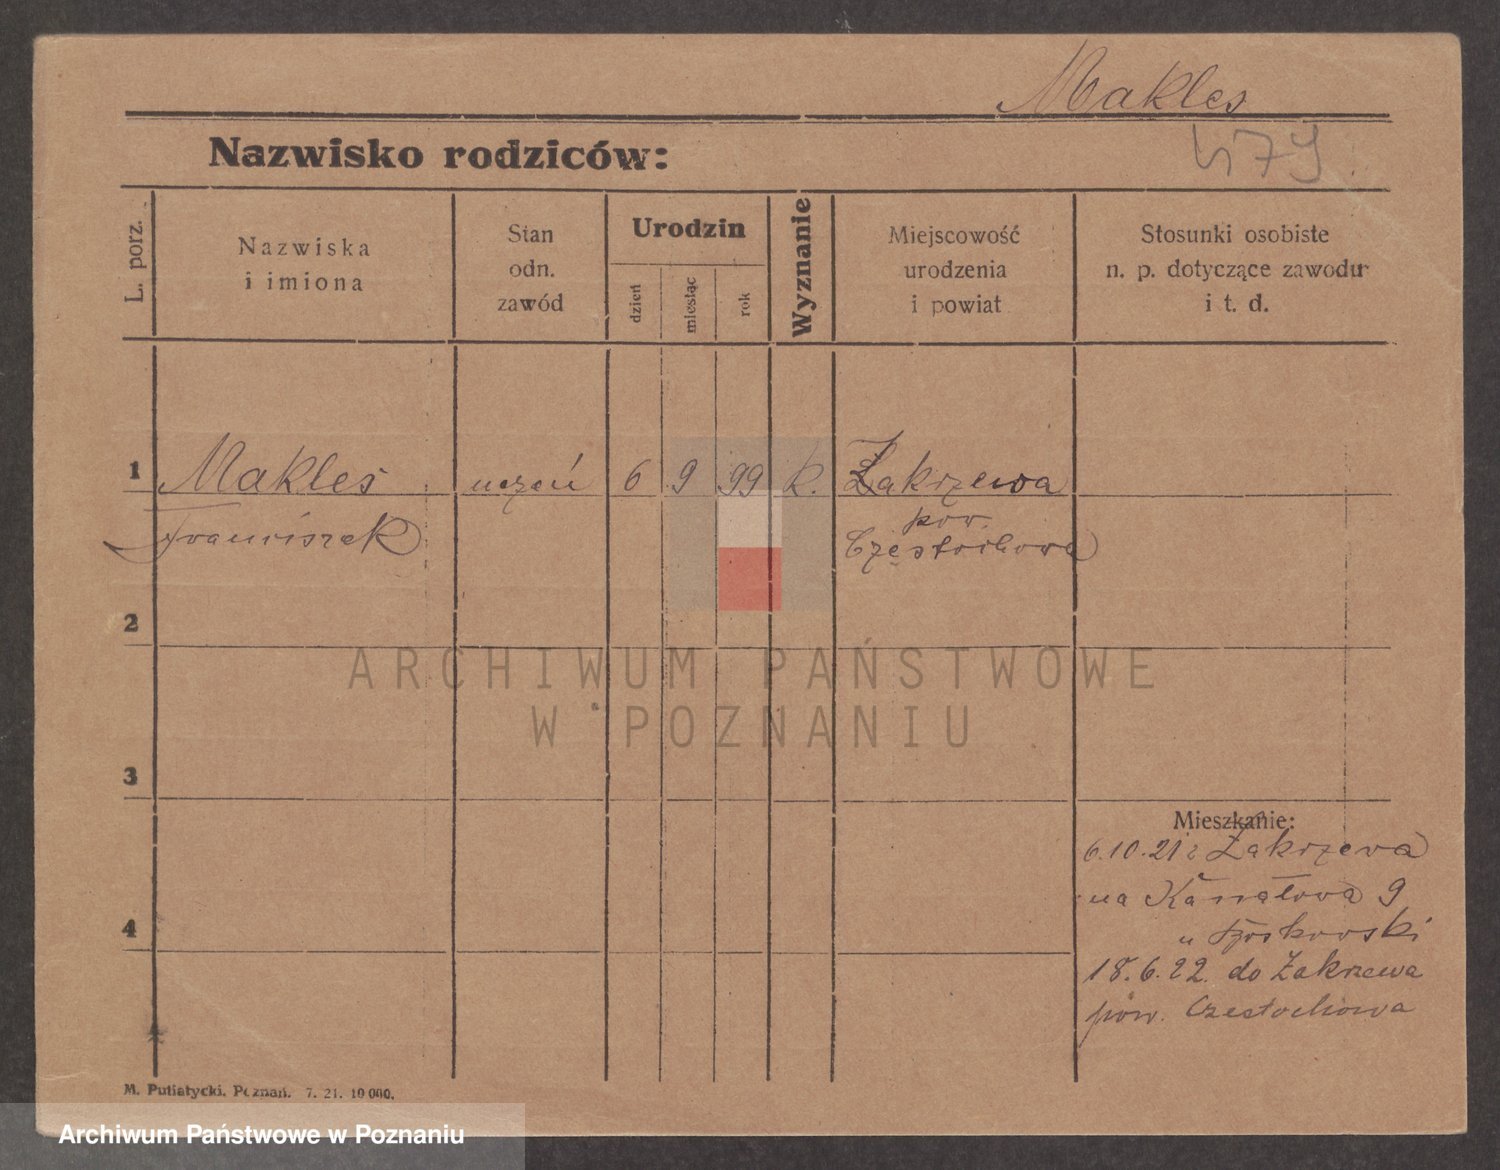 Makles
Nazwisko rodziców:
479
L. porz.
Nazwiska
i imiona
Stan
odn.
zawód
Urodzin
dzień
miesiąc
rok
Wyznanie
Miejscowość
urodzenia
i powiat
Stosunki osobiste
n. p. dotyczące zawodu
i t. d.
1 Makles uczeń 6 9 99 k. Zakrzewa
Franciszek pow.
Częstochowa
2
ARCHIWUM PAŃSTWOWE
W POZNANIU
3
Mieszkanie:
6.10.21 z Zakrzewa
na Kanałowa 9
u
18.6.22. do Zakrzewa
pow. Czestochowa
4
M. Putiatycki, Poznań. 7. 21. 10 000.
Archiwum Państwowe w Poznaniu